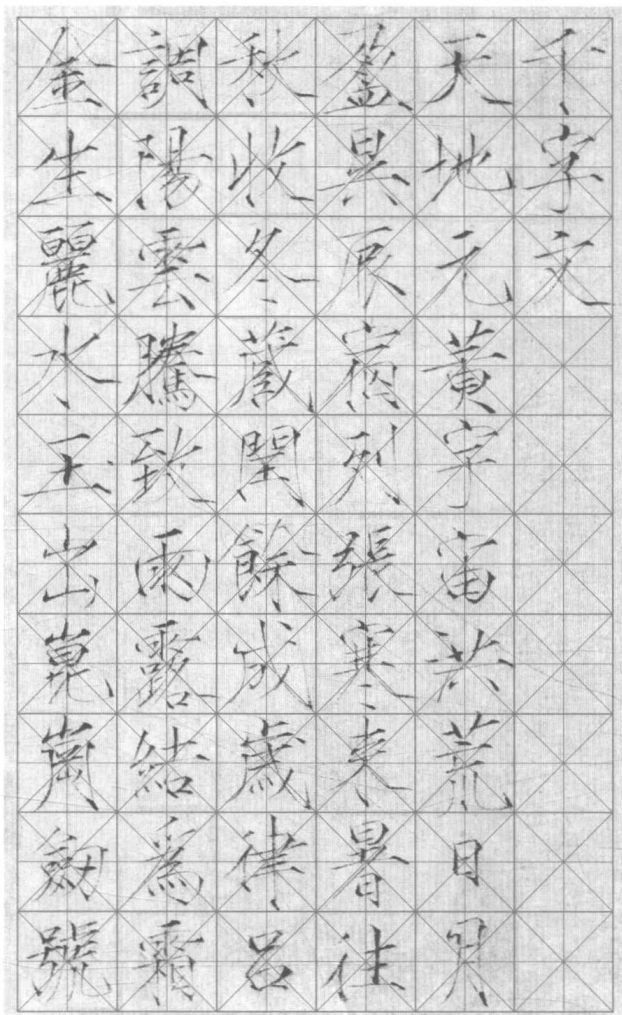 千字文
天地元黃宇宙洪荒日月
盈昃辰宿列張寒来暑往
秋收冬藏閏餘成歲律呂
調陽雲騰致雨露結爲霜
金生麗水玉出崑崗劒號